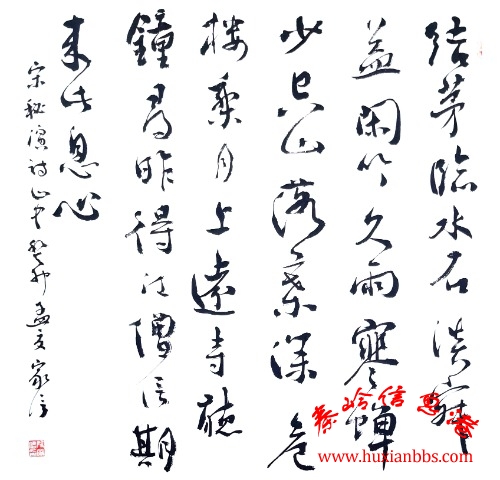 结茅臨水石淡寂
益闲吟久雨寒蝉
少空山落葉深危
楼乘月上遠寺聽
鐘尋昨得江僧信期
来此息心
宋秘演诗山中癸卯孟夏家
秦岭信息港
www.huxianbbs.com